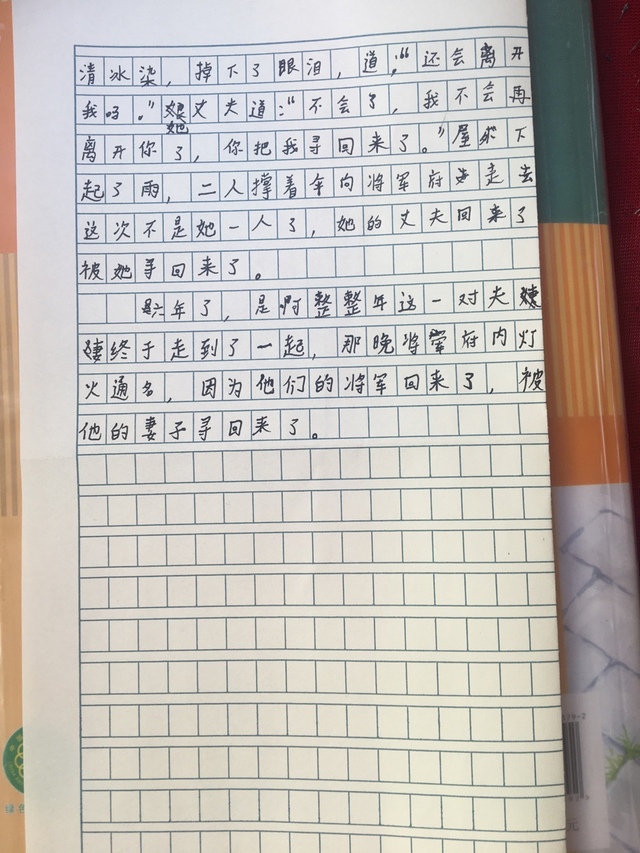 清冰染，掉下了眼泪，道，“还会离开
我吗。”她丈夫道：“不会了，我不会再
离开你了，你把我寻回来了。”屋外下
起了雨，二人撑着伞向将军府走去
这次不是她一人了，她的丈夫回来了
被她寻回来了。
六年了，是啊整整年这一对夫
妻终于走到了一起，那晚将军府内灯
火通名，因为他们的将军回来了，被
他的妻子寻回来了。
绿色